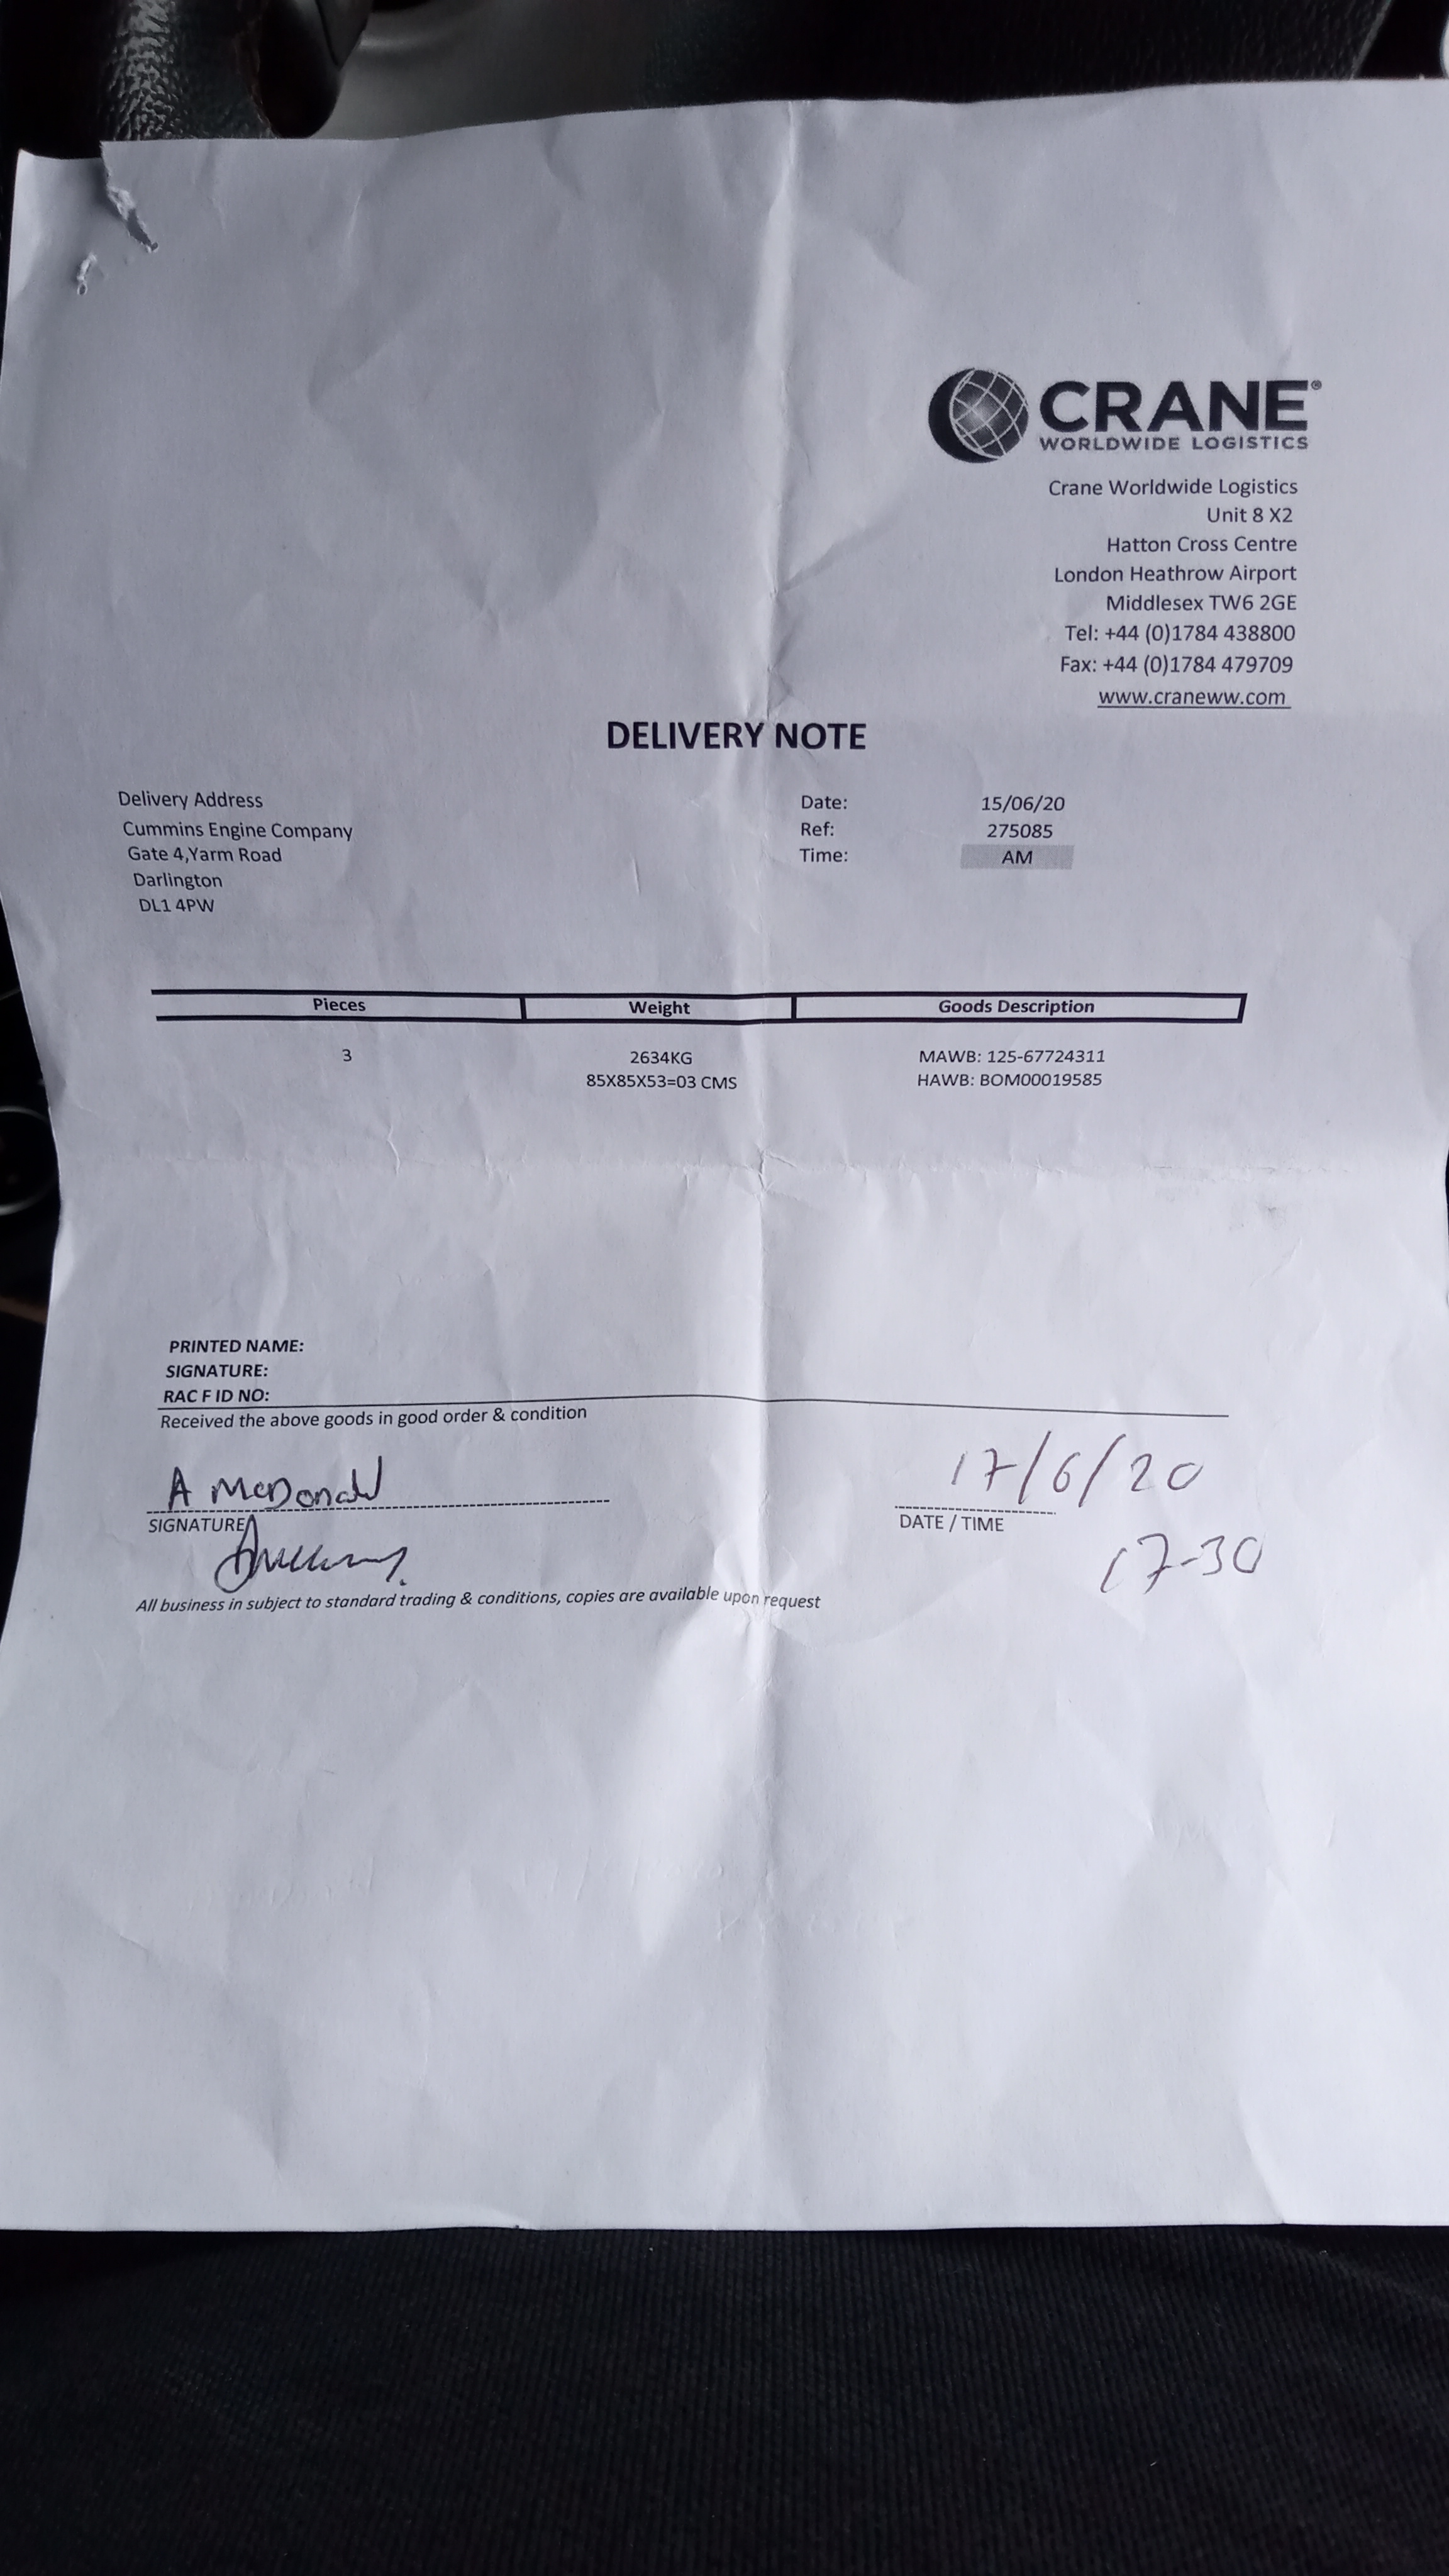 CRANE®
WORLDWIDE LOGISTICS
Crane Worldwide Logistics
Unit 8 X2
Hatton Cross Centre
London Heathrow Airport
Middlesex TW6 2GE
Tel: +44 (0)1784 438800
Fax: +44 (0)1784 479709
www.craneww.com
DELIVERY NOTE
Delivery Address
Cummins Engine Company
Gate 4,Yarm Road
Darlington
DL1 4PW
Date: 15/06/20
Ref: 275085
Time: AM
Pieces Weight Goods Description
3 2634KG MAWB: 125-67724311
85X85X53=03 CMS HAWB: BOM00019585
PRINTED NAME:
SIGNATURE:
RAC F ID NO:
Received the above goods in good order & condition
A McDonald 17/6/20
SIGNATURE DATE / TIME
17-30
All business in subject to standard trading & conditions, copies are available upon request